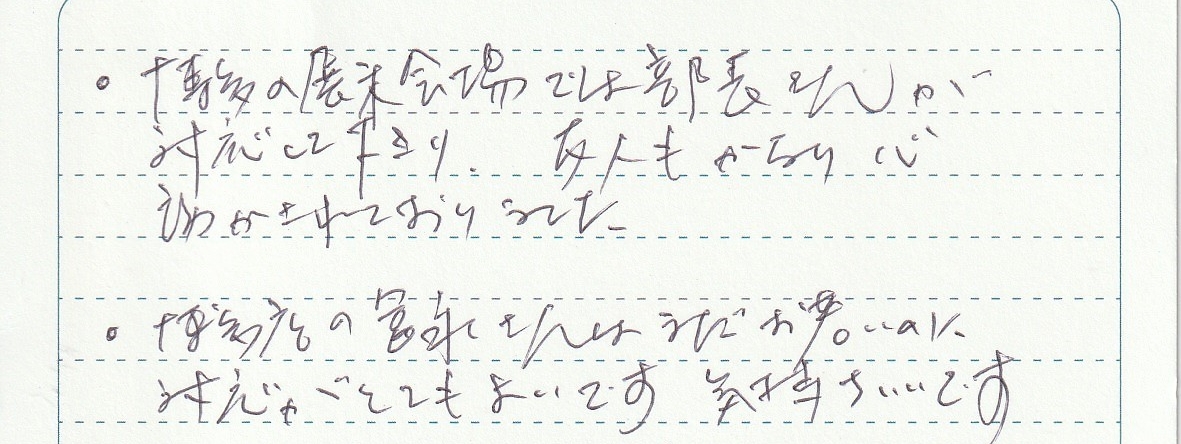 。博多の展示会場では部長さんが
対応して下さり、友人もかなり心
動かされておりました
。博多店の富永さんはまだお若いのに
対応がとてもよいです 気持ちいいです